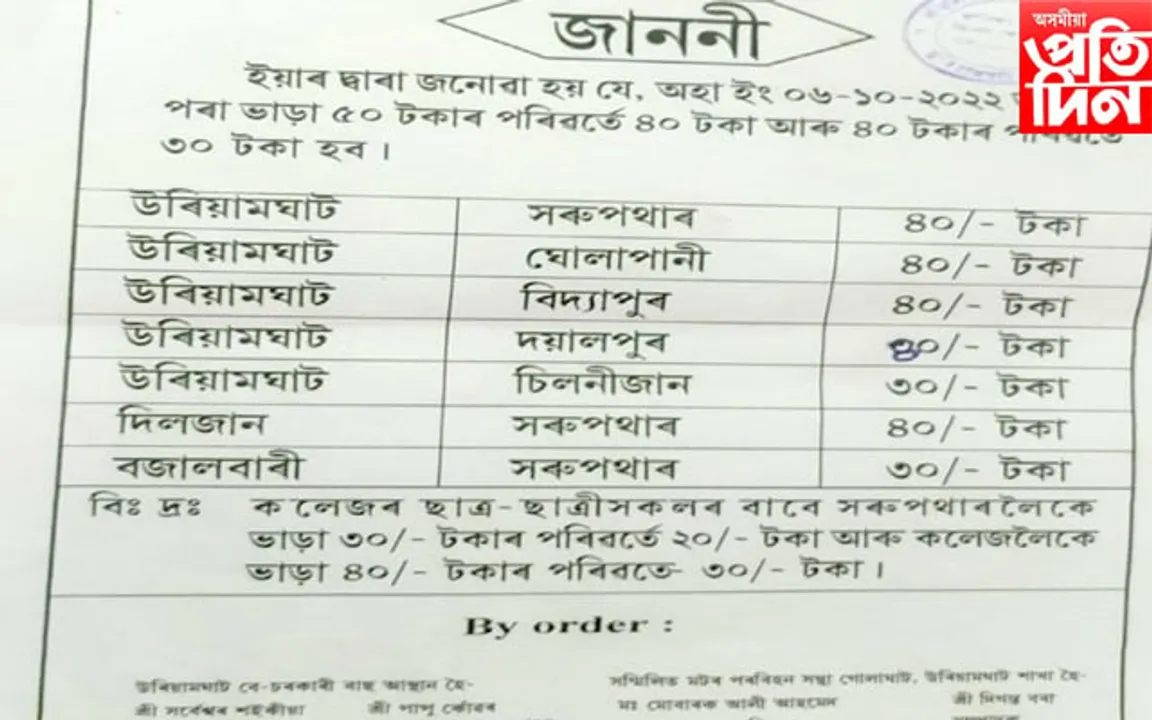 জাননী
অসমীয়া
প্ৰতি
দিন
ইয়াৰ দ্বাৰা জনোৱা হয় যে, অহা ইং ০৬-১০-২০২২
পৰা ভাড়া ৫০ টকাৰ পৰিৱৰ্তে ৪০ টকা আৰু ৪০ টকাৰ পৰিৱৰ্তে
৩০ টকা হব ।
উৰিয়ামঘাট সৰুপথাৰ ৪০/- টকা
উৰিয়ামঘাট ঘোলাপানী ৪০/- টকা
উৰিয়ামঘাট বিদ্যাপুৰ ৪০/- টকা
উৰিয়ামঘাট দয়ালপুৰ ৪০/- টকা
উৰিয়ামঘাট চিলনীজান ৩০/- টকা
দিলজান সৰুপথাৰ ৪০/- টকা
বজালবাৰী সৰুপথাৰ ৩০/- টকা
বিঃ দ্ৰঃ কলেজৰ ছাত্ৰ-ছাত্ৰীসকলৰ বাবে সৰুপথাৰলৈকে
ভাড়া ৩০/- টকাৰ পৰিৱৰ্তে ২০/- টকা আৰু কলেজলৈকে
ভাড়া ৪০/- টকাৰ পৰিৱৰ্তে ৩০/- টকা ।
By order :
উৰিয়ামঘাট বে-চৰকাৰী বাছ
সন্মিলিত মটৰ পৰিবহন সন্থা গোলাঘাট, উৰিয়ামঘাট শাখা হৈ-